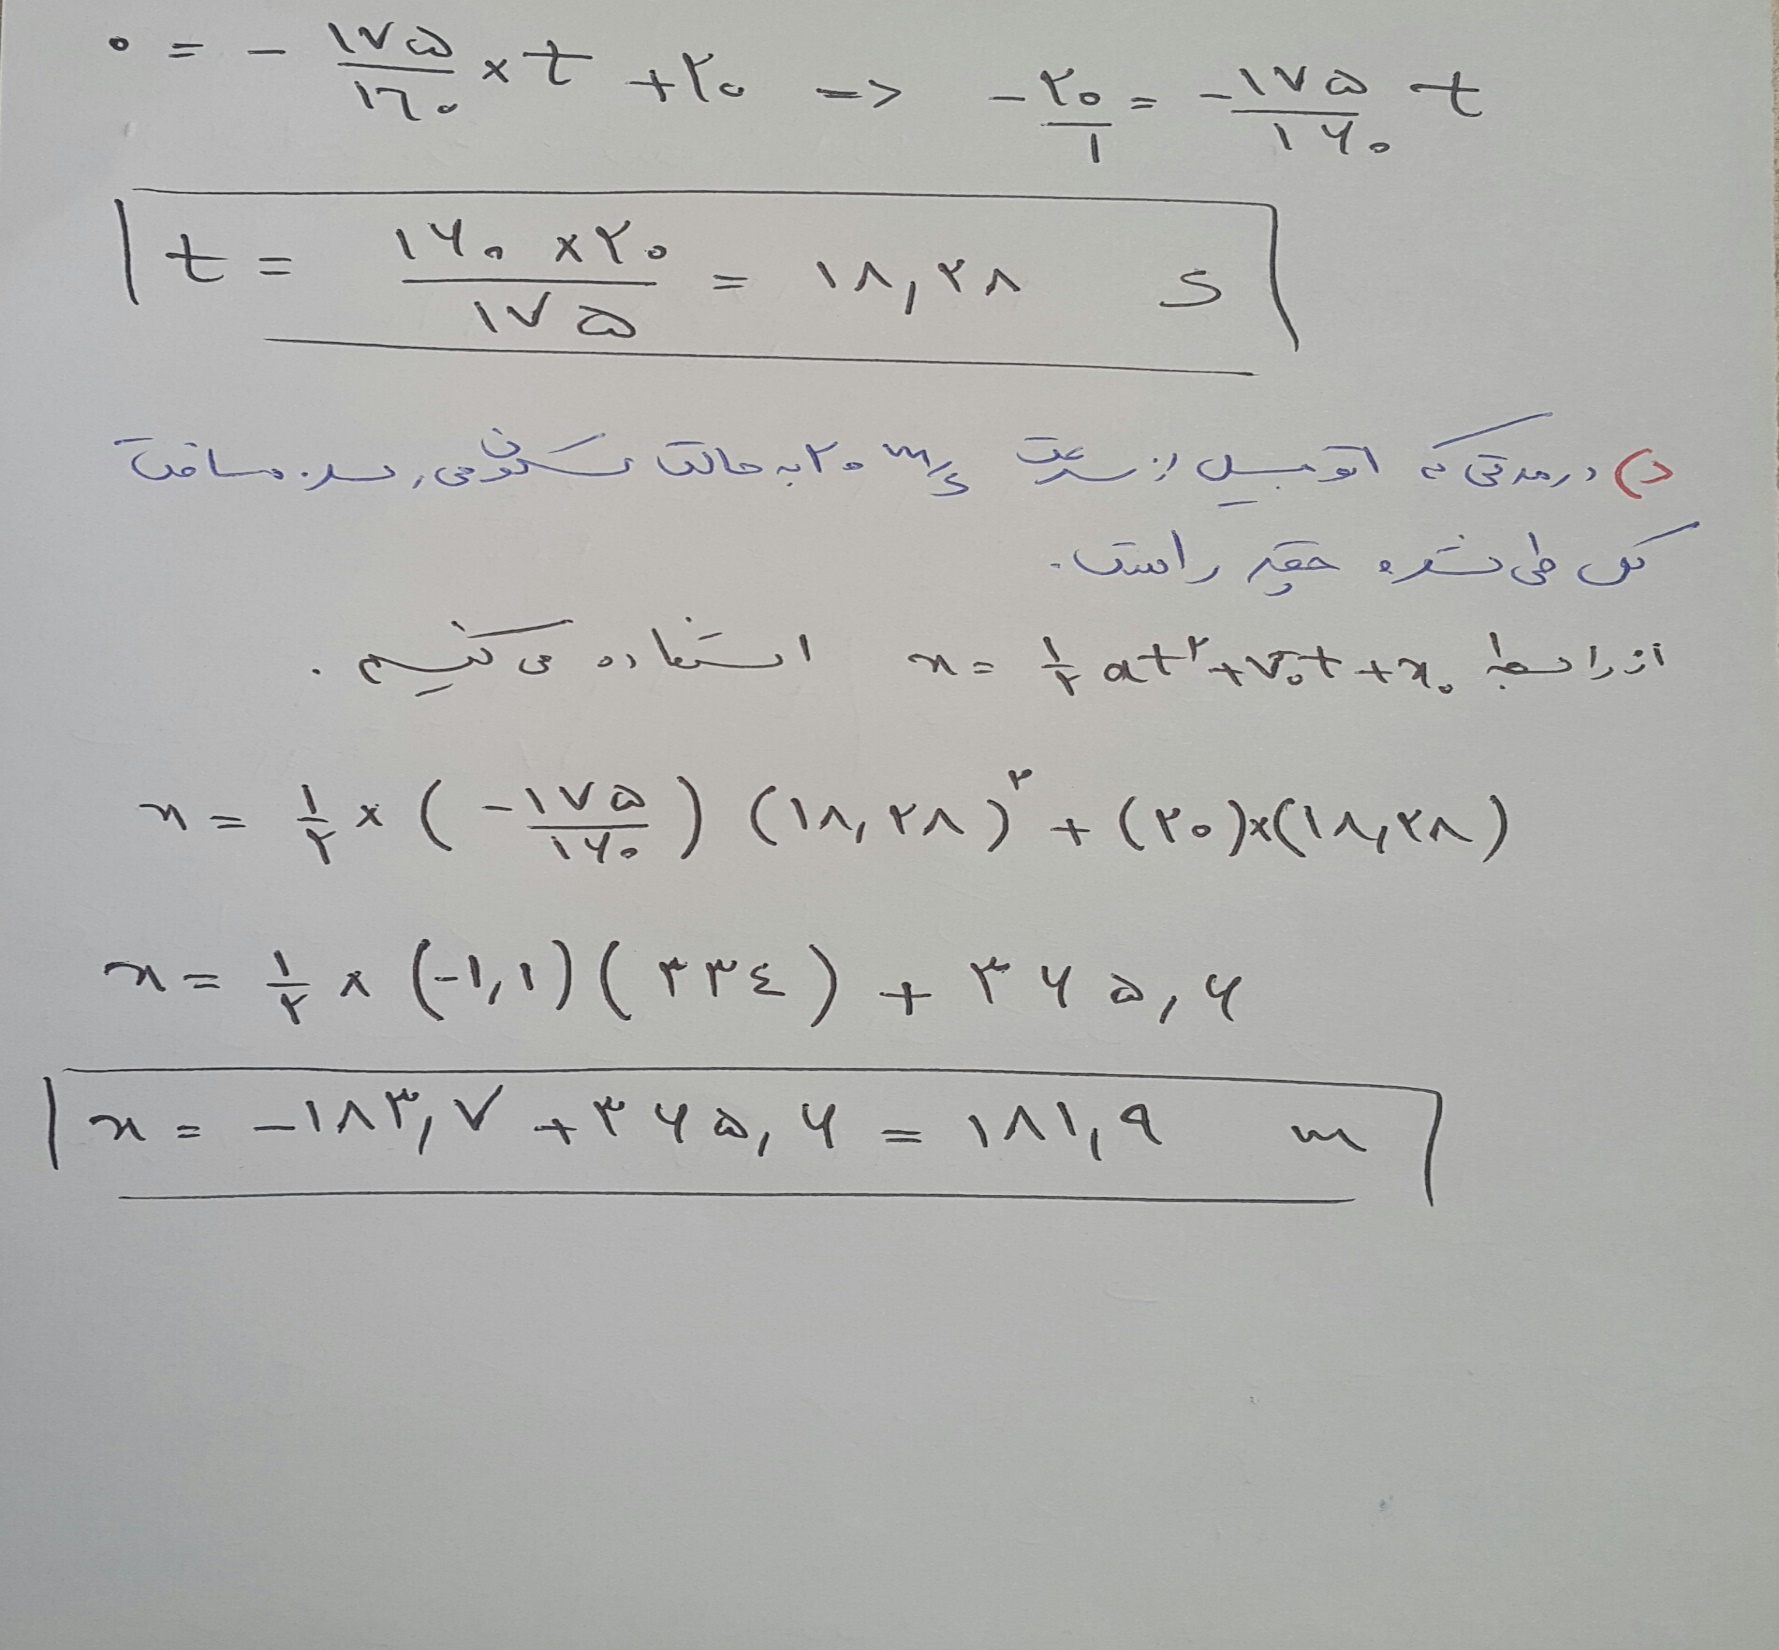 ۰ = - ۱۷۵/۱۶۰ × t + ۲۰ => - ۲۰/۱ = - ۱۷۵/۱۶۰ t
t = ۱۶۰ × ۲۰ / ۱۷۵ = ۱۸,۲۸ s
د) در مدتی که اتومبیل از سرعت ۲۰ m/s به حالت سکون می رسد. مسافت
کل طی شده چقدر است.
از رابطه x = ۱/۲ at² + v₀t + x₀ استفاده می کنیم.
x = ۱/۲ × (-۱۷۵/۱۶۰) (۱۸,۲۸)² + (۲۰)×(۱۸,۲۸)
x = ۱/۲ × (-۱,۱) (۳۳٤) + ۳۶۵,۶
x = -۱۸۳,۷ + ۳۶۵,۶ = ۱۸۱,۹ m